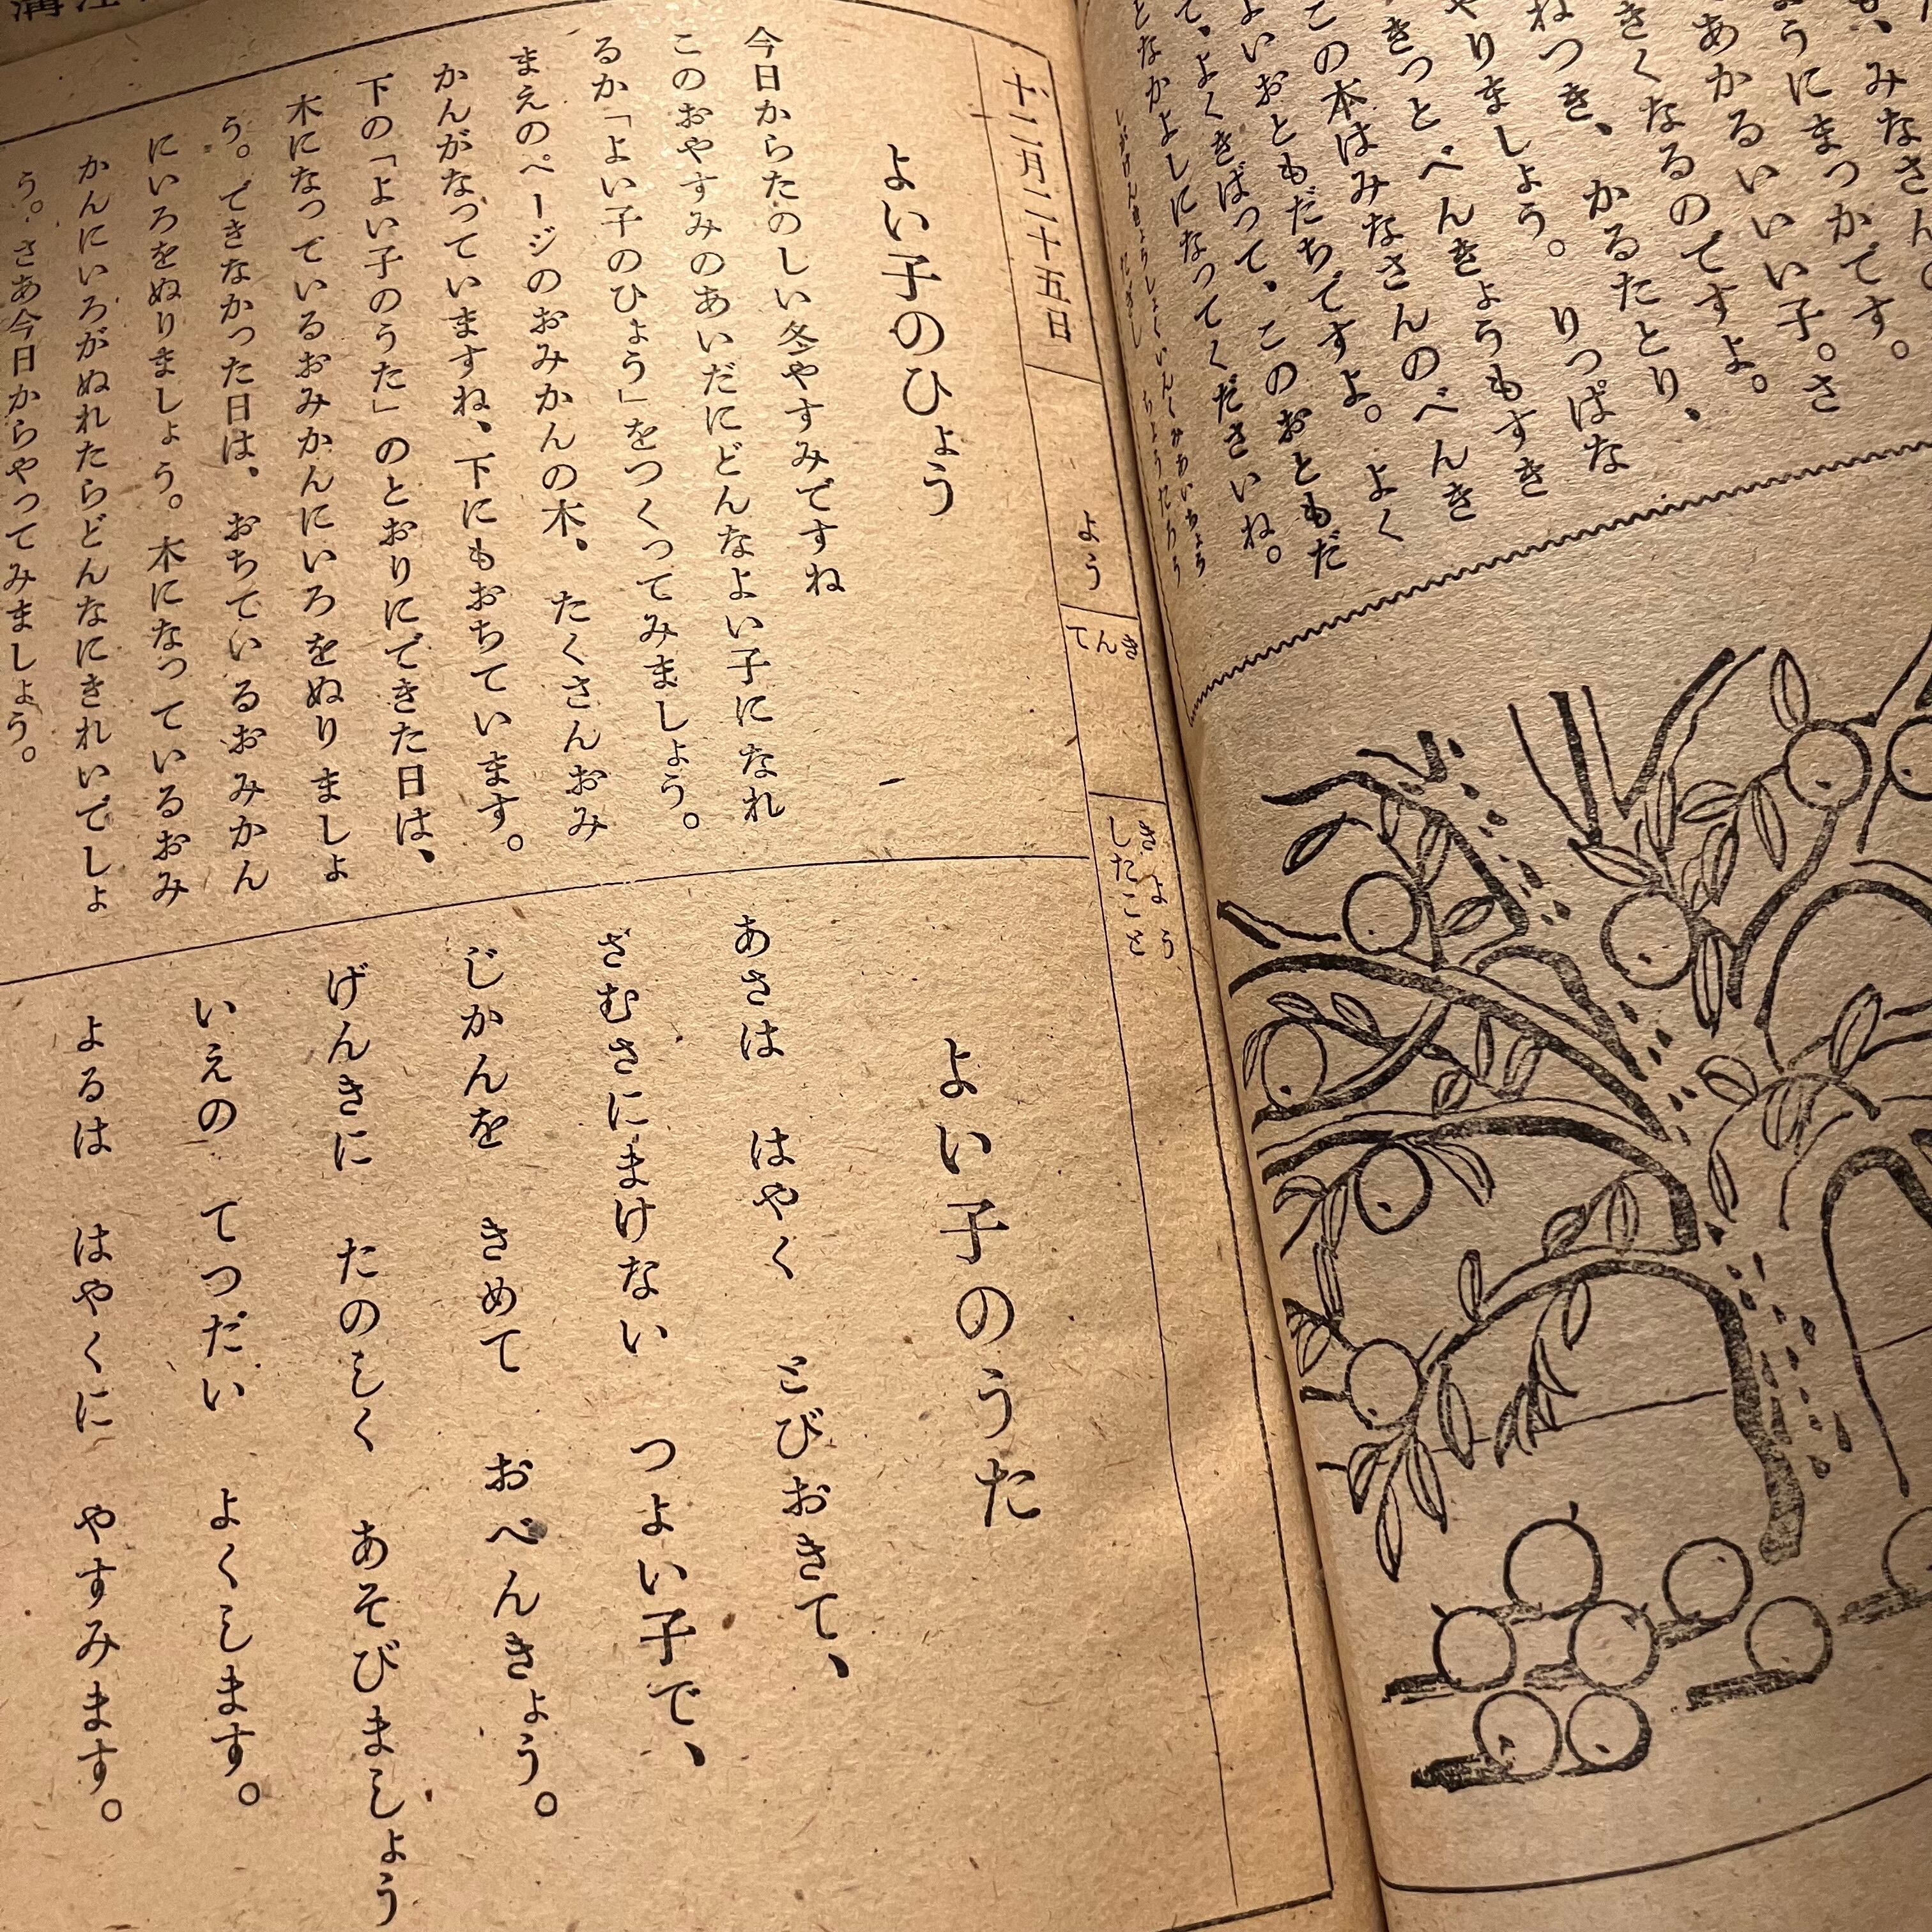 みなさん
ようにまつかです。
あかるいいい子。さ
きくなるのですよ。
ねつき、かるたとり、
やりましょう。 りっぱな
きっとべんきょうもすき
この本はみなさんのべんき
よいおともだちですよ。 よく
て、よくきばって、このおともだ
となかよしになってくださいね。
十二月二十五日
よう
てんき
きょう
したこと
よい子のひょう
今日からたのしい冬やすみですね
このおやすみのあいだにどんなよい子になれ
るか「よい子のひょう」をつくってみましょう。
まえのページのおみかんの木、たくさんおみ
かんがなっていますね、下にもおちています。
下の「よい子のうた」のとおりにできた日は、
木になっているおみかんにいろをぬりましょ
う。できなかった日は、おちているおみかん
にいろをぬりましょう。木になっているおみ
かんにいろがぬれたらどんなにきれいでしょ
う。さあ今日からやってみましょう。
よい子のうた
あさは はやく とびおきて、
さむさにまけない つよい子で、
じかんを きめて おべんきょう。
げんきに たのしく あそびましょう
いえの てつだい よくします。
よるは はやくに やすみます。